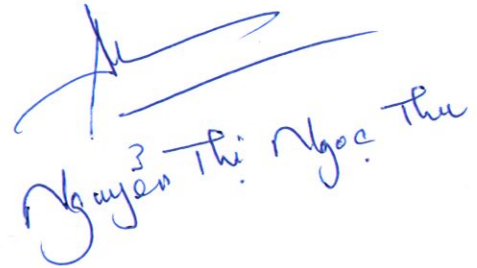 Nguyễn Thị Ngọc Thu